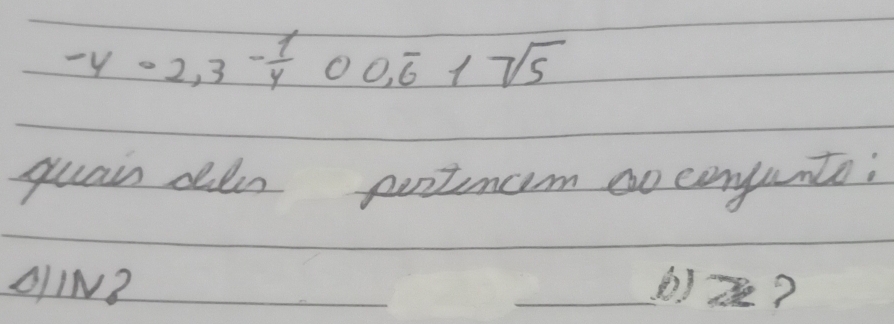 -4 -2,3 -1/4 0 0,6̅ 1 √5
quais deles pertencem ao conjunto:
a) IN? b) Z?